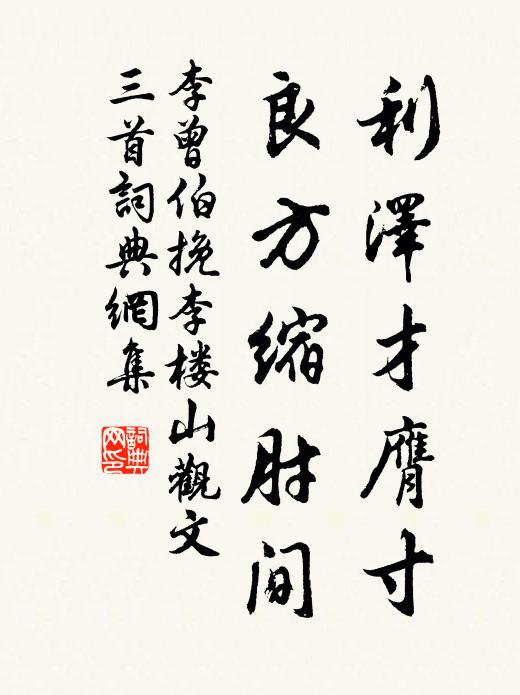 利澤才膚寸
良方縮肘间
李曾伯挽李楼山觀文
三首詞典網集
詞典
网印